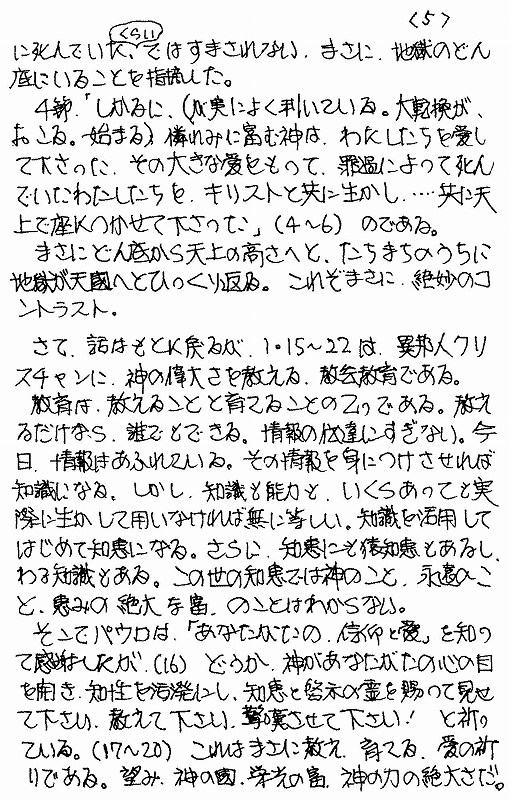 <5>
くらい
に死んでいた、ではすまされない．まさに．地獄のどん
底にいることを指摘した。
4節．「しかるに、(が実によく利いている。大転換が、
おこる。始まる) 憐れみに富む神は．わたしたちを愛し
て下さった．その大きな愛をもって．罪過によって死ん
でいたわたしたちを．キリストと共に生かし．…共に天
上で座につかせて下さった」(4～6) のである。
まさにどん底から天上の高さへと、たちまちのうちに
地獄が天国へとひっくり返る。これぞまさに．絶妙のコ
ントラスト。
さて．話はもとに戻るが．1・15～22は．異邦人クリ
スチャンに．神の偉大さを教える．教会教育である。
教育は．教えることと育てることの2つである。教え
るだけなら．誰でもできる。情報の伝達にすぎない。今
日．情報はあふれている。その情報を身につけさせれば
知識になる。しかし．知識も能力も．いくらあっても実
際に生かして用いなければ無に等しい。知識を活用して
はじめて知恵になる。さらに．知恵にも猿知恵もあるし．
わる知識もある。この世の知恵では神のこと．永遠のこ
と．恵みの絶大な富．のことはわからない。
そこでパウロは．「あなたがたの．信仰と愛」を知っ
て感謝したが．(16) どうか．神があなたがたの心の目
を開き．知性を活発にし．知恵と啓示の霊を賜って見せ
て下さい．教えて下さい．驚嘆させて下さい！ と祈っ
ている。(17～20) これはまさに教え．育てる．愛の祈
りである。望み．神の國．栄光の富．神の力の絶大さだ。